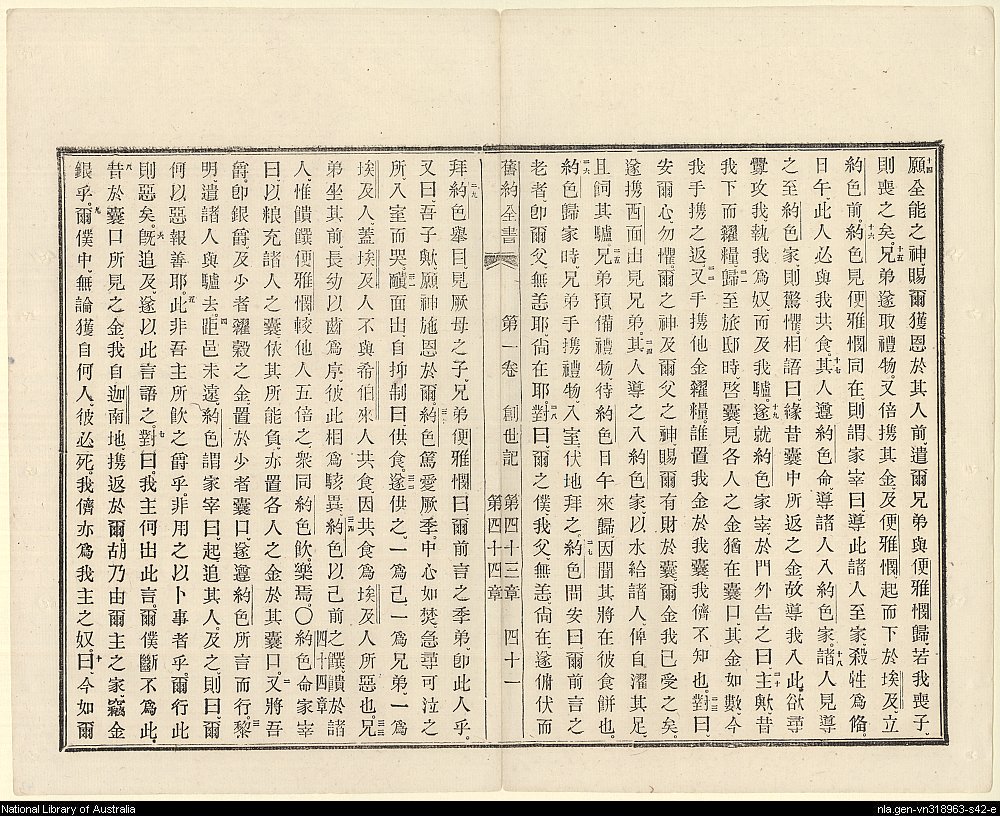 十四願全能之神賜爾獲恩於其人前、遣爾兄弟與便雅憫歸、若我喪子、
則喪之矣。十五兄弟遂取禮物、又倍携其金、及便雅憫、起而下於埃及、立
約色前、十六約色見便雅憫同在、則謂家宰曰、導此諸人至家、殺牲爲備、
日午、此人必與我共食、十七其人遵約色命、導諸人入約色家。十八諸人見導
之至約色家、則驚懼、相語曰、緣昔囊中所返之金、故導我入此、欲尋
釁攻我、執我爲奴、而及我驢。十九遂就約色家宰、於門外告之曰、二十主歟、昔
我下而糴糧、二一歸至旅邸時、啓囊、見各人之金、猶在囊口、其金如數、今
我手携之返、二二又手携他金糴糧、誰置我金於我囊、我儕不知也。二三對曰、
安爾心、勿懼、爾之神、及爾父之神、賜爾有財於囊、爾金我已受之矣。
遂携西面出見兄弟。二四其人導之入約色家、以水給諸人、俾自濯其足、
且飼其驢。二五兄弟預備禮物、待約色日午來歸、因聞其將在彼食餅也。
二六約色歸家時、兄弟手携禮物、入室、伏地拜之。二七約色問安曰、爾前言之
老者、卽爾父、無恙耶、尙在耶。二八對曰、爾之僕、我父、無恙、尙在、遂俯伏而
舊約全書 第一卷 創世記 第四十三章 第四十四章 四十一
拜。二九約色舉目見厥母之子、兄弟便雅憫曰、爾前言之季弟、卽此人乎。
又曰、吾子歟、願神施恩於爾。三十約色篤愛厥季、中心如焚、急尋可泣之
所、入室而哭、三一靧面出、自抑制曰、供食。三二遂供之、一爲己、一爲兄弟、一爲
埃及人、蓋埃及人不與希伯來人共食、因共食爲埃及人所惡也。三三兄
弟坐其前、長幼以齒爲序、彼此相爲駭異。三四約色以己前之饌、饋於諸
人、惟饋饌便雅憫、較他人五倍之、衆同約色飲、樂焉。〇四十四章約色命家宰
曰、以粮充諸人之囊、依其所能負、亦置各人之金於其囊口。二又將吾
爵、卽銀爵、及少者糴穀之金、置於少者囊口、遂遵約色所言而行。三黎
明、遣諸人與驢去。四距邑未遠、約色謂家宰曰、起追其人、及之則曰、爾
何以惡報善耶。五此非吾主所飲之爵乎、非用之以卜事者乎、爾行此
則惡矣。六旣追及、遂以此言語之。七對曰、我主何出此言、爾僕斷不爲此、
八昔於囊口所見之金、我自迦南地携返於爾、胡乃由爾主之家竊金
銀乎。九爾僕中、無論獲自何人、彼必死。我儕亦爲我主之奴。十曰、今如爾
National Library of Australia
nla.gen-vn318963-s42-e